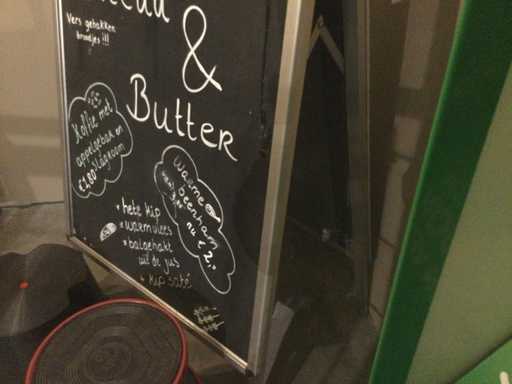 &
Butter
Vers gebakken
broodjes !!!
Koffie met
appelgebak en
slagroom
Warme
beenham
nu € 2,-
* hete kip
* warm vlees
* balgehakt
uit de jus
* Kip saté